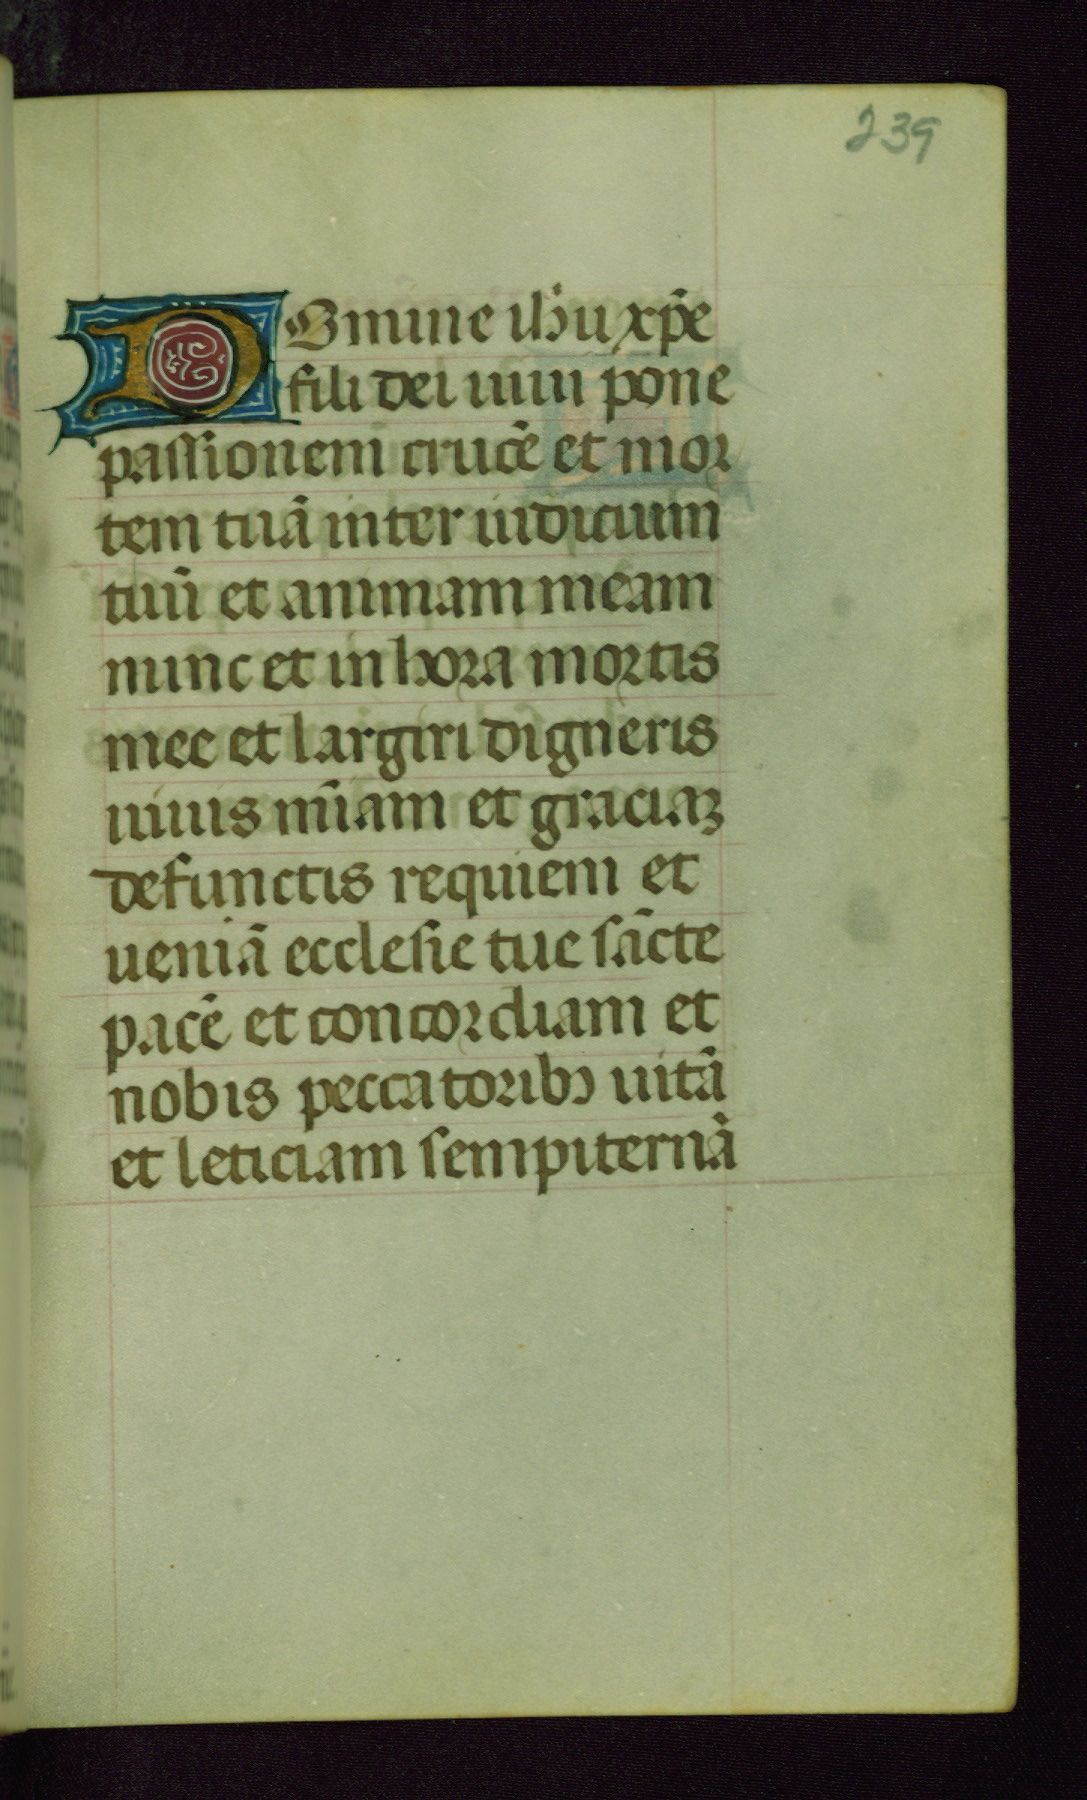 239
Domine ihu xp̄e
fili dei uiui pone
passionem crucē et mor
tem tuā inter iudicium
tuū et animam meam
nunc et in hora mortis
mee et largiri digneris
uiuis mīam et graciaꝫ
defunctis requiem et
ueniā ecclesie tue sācte
pacē et concordiam et
nobis peccatoribꝫ uitā
et leticiam sempiternā